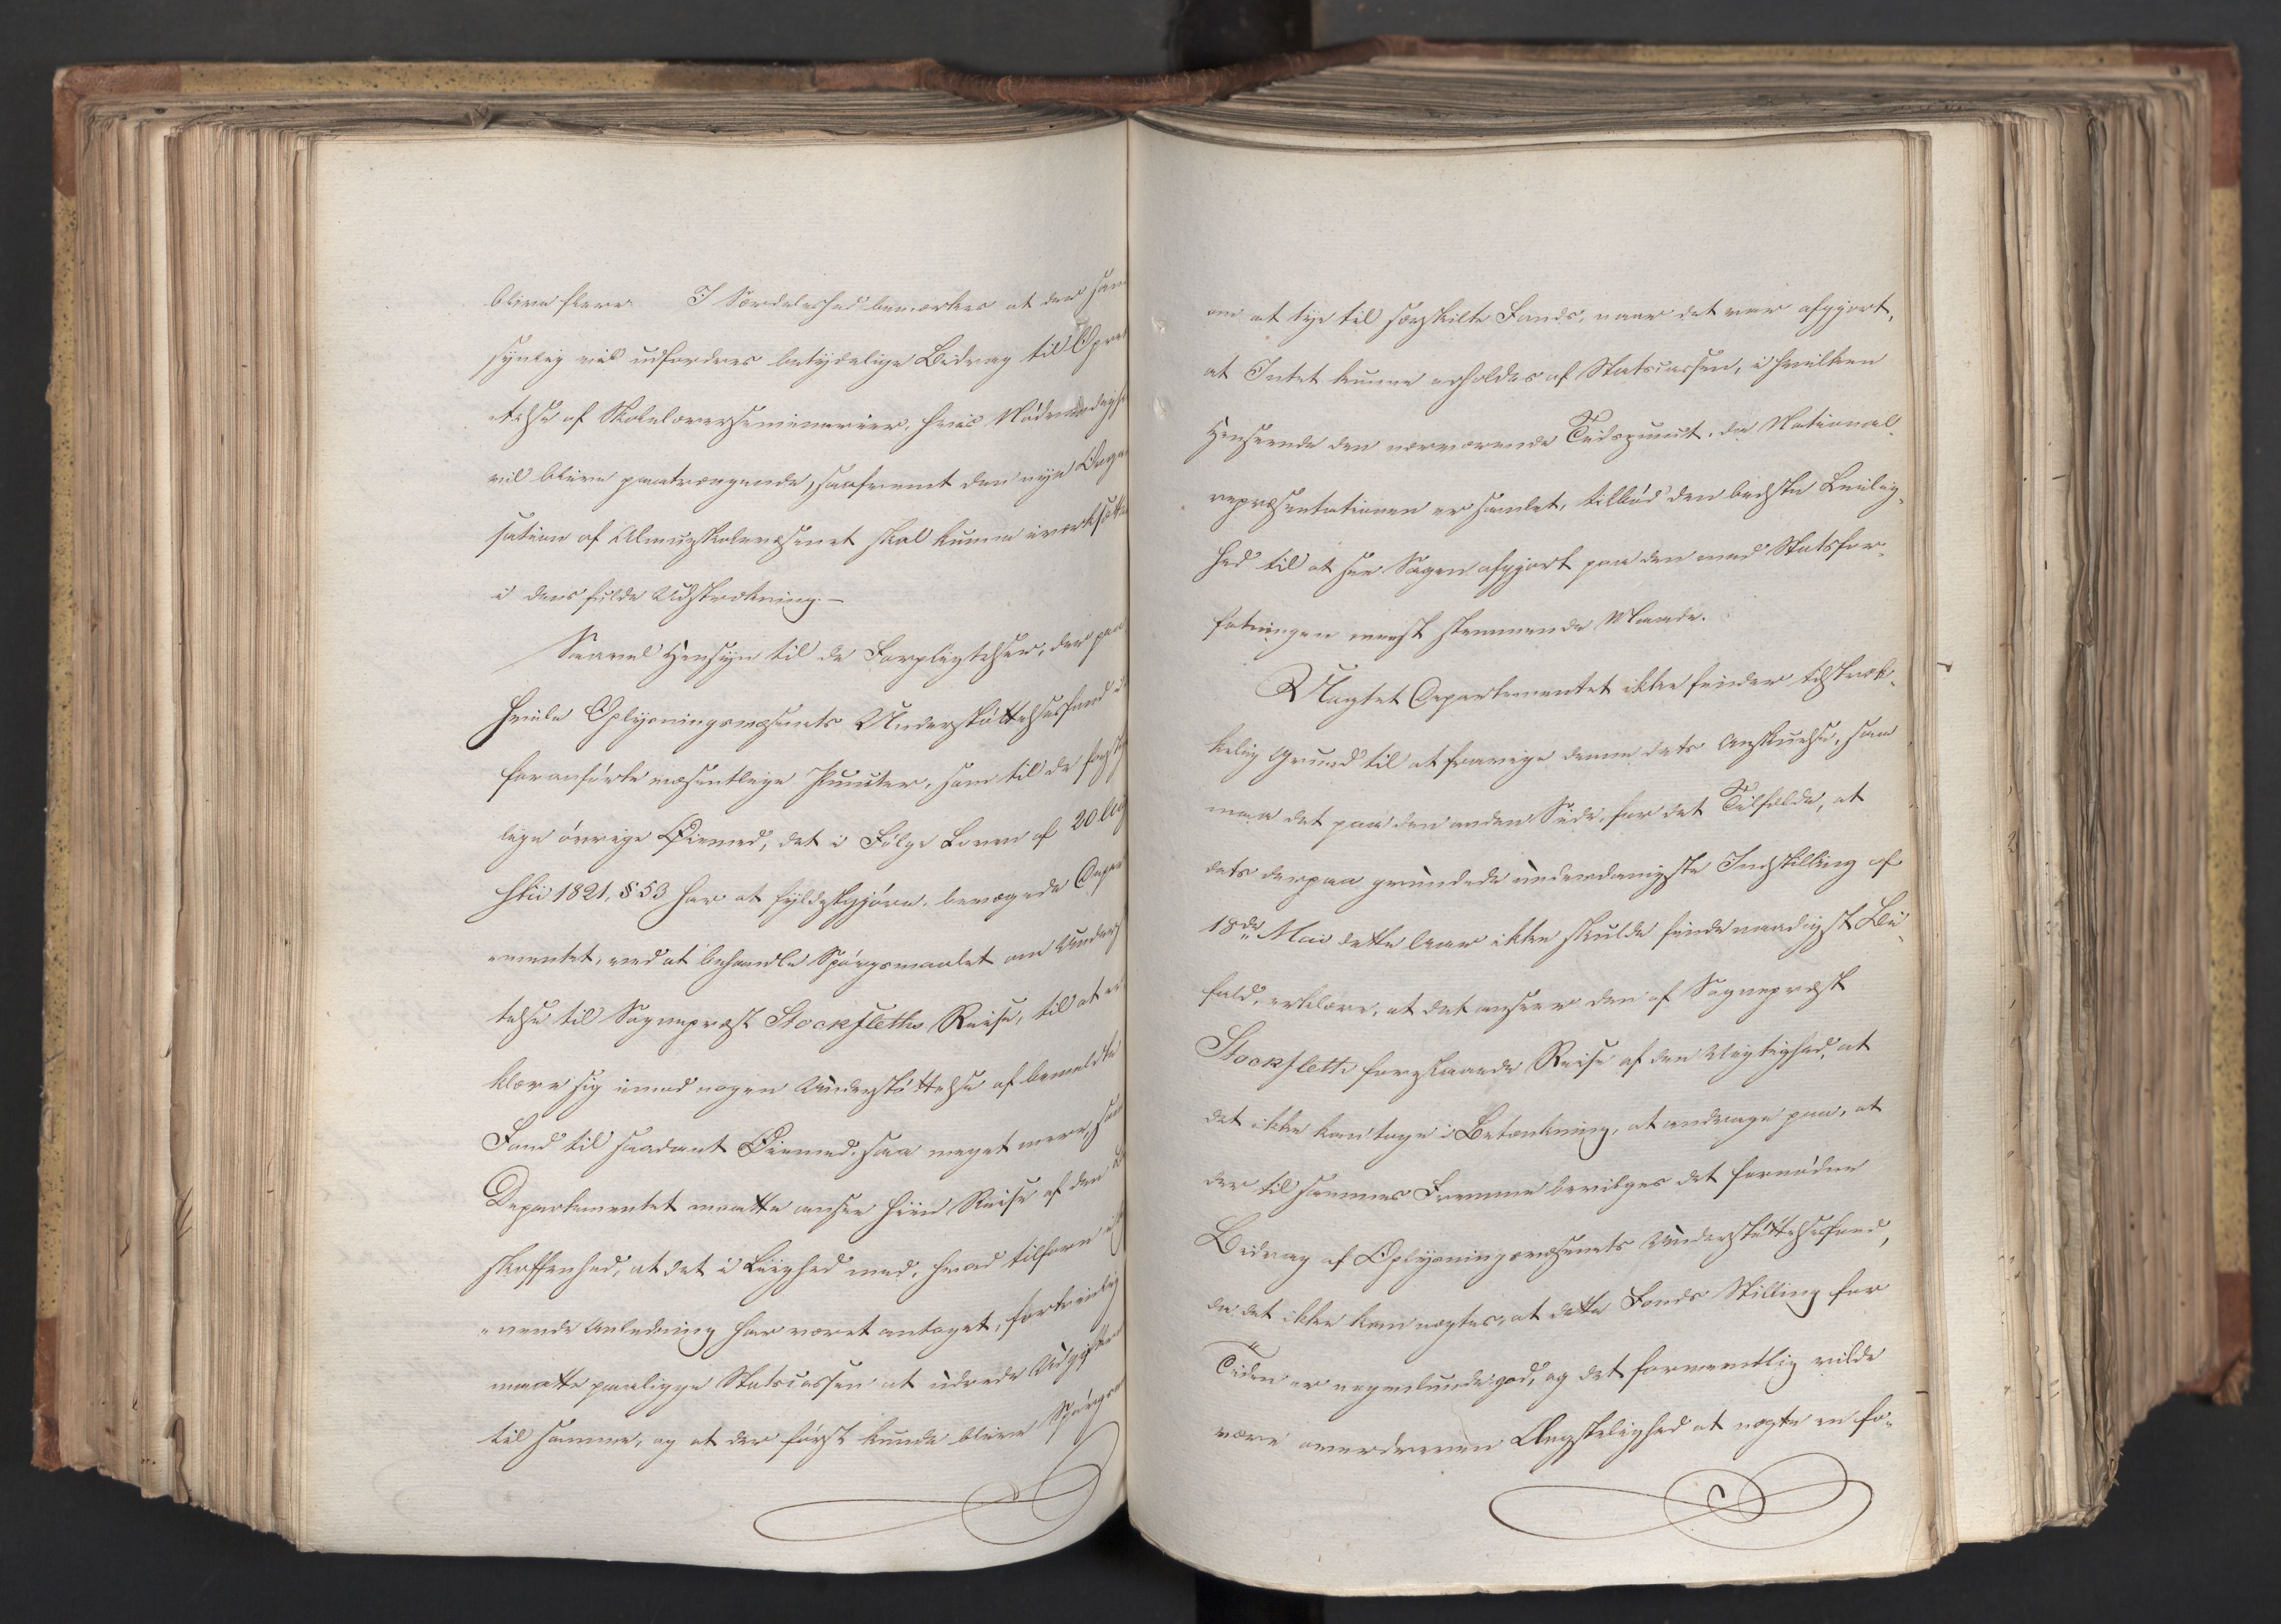 blive flere. I Særdeleshed bemærkes at der
synlig vil udfordres betydelige Bidrag til
-telse af Skolelærerseminarier, hvis Nødvendighe
vil blive paatrængende, saafremt den nye
sation af Almueskolevæsenet skal kunne iværksætte
i dens fulde Udstrækning.—
Saavel Hensyn til de Forpligtelser, der paa
hvile Oplysningsvæsenets Understøttelsesfond
foranførte væsentlige Puncter, som til de
lige øvrige Øiemed, det i Følge Loven af 20
Juli 1821, § 53 har at fyldestgjøre, bevægede
-mentet, ved at behandle Spørgsmaalet om Underst
telse til Sognepræst Stockfleths Reise, til at
klære sig imod nogen Understøttelse af bemeldte
Fond til saadant Øiemed, saa meget mere, som
Departementet maatte ansee hiin Reise af den
skaffenhed, at det i Liighed med, hvad tilforn
-nende Anledning har været antaget, fortrinlig
maatte paaligge Statscassen at udrede Udgiften
til samme, og at der først kunde blive Spørgs
om at tye til særskilte Fonds, naar det var afgjort,
at Intet kunne erholdes af Statscassen, i hvilken
Henseende den nærværende Tidspunct, da National-
repræsentationen er samlet, tilbød den bedste Leilig-
hed til at see Sagen afgjort paa den med Statsfor-
fatningen meest stemmende Maade.
Uagtet Departementet ikke finder tilstræk-
kelig Grund til at fravige denne dets Anskuelse, saa
maa det paa den anden Side, for det Tilfælde, at
dets derpaa grundede underdanigste Indstilling af
18de Mai dette Aar ikke skulde finde naadigst Bi-
fald, erklære, at det anseer den af Sognepræst
Stockfleth foreslaaede Reise af den Vigtighed, at
det ikke kan tage i Betænkning, at andrage paa, at
der til sammes Fremme bevilges det fornødne
Bidrag af Oplysningsvæsenets Understøttelsesfond,
da det ikke kan nægtes, at dette Fonds Stilling for
Tiden er nogenlunde god, og det formentlig vilde
være overdreven Ængstelighed at nægte en fo-